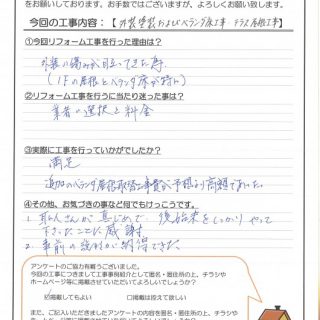 をお願いしております。お手数ではございますが、よろしくお願い致します。
今回の工事内容:【外装塗装およびベランダ床工事・テラス屋根工事】
①今回リフォーム工事を行った理由は?
外装の傷みが目立ってきた為。
(1Fの屋根とベランダ床が特に)
②リフォーム工事を行うに当たり迷った事は?
業者の選択と料金
③実際に工事を行っていかがでしたか?
満足
追加のベランダ屋根取替工事費が予想より高額であった。
④その他、お気づきの事など何でもけっこうです。
1. さんが真じめで、後始末をしっかりやって
下さったことに感謝。
2. 事前の説明が納得できた。
アンケートのご協力有難うございました。
今回の工事につきまして工事事例紹介として匿名・居住所の上、チラシや
ホームページ等に掲載させていただいてよろしいでしょうか?
☑掲載してもよい □掲載は控えて欲しい
また、ご記入いただきましたアンケートの内容を匿名・居住所の上、チラシや